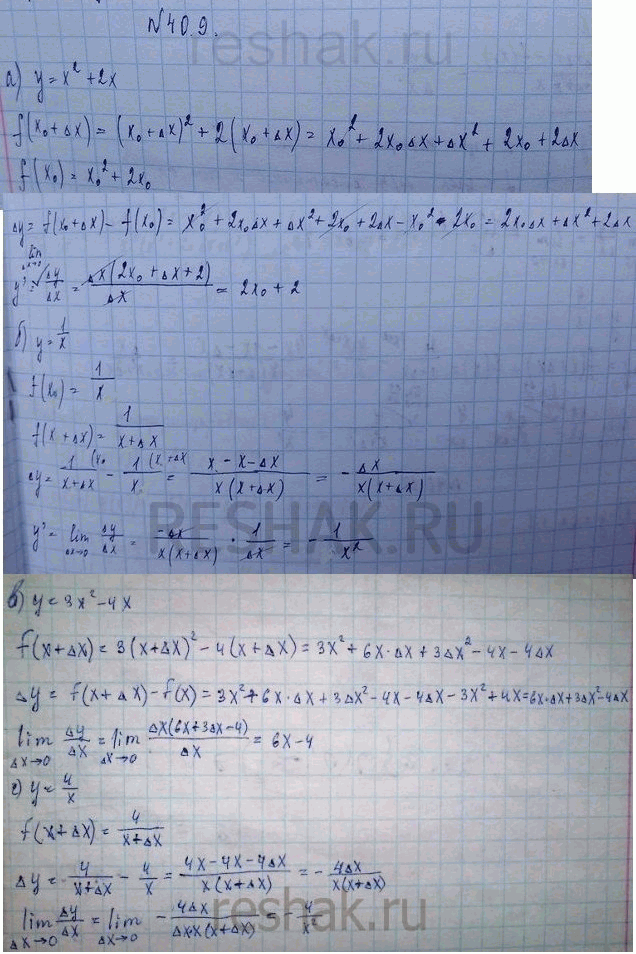 reshak.ru
№40.9.
а) y = x² + 2x
f(x₀ + Δx) = (x₀ + Δx)² + 2(x₀ + Δx) = x₀² + 2x₀Δx + Δx² + 2x₀ + 2Δx
f(x₀) = x₀² + 2x₀
Δy = f(x₀ + Δx) - f(x₀) = x₀² + 2x₀Δx + Δx² + 2x₀ + 2Δx - x₀² - 2x₀ = 2x₀Δx + Δx² + 2Δx
y' = lim Δx→0 Δy/Δx = Δx(2x₀ + Δx + 2)/Δx = 2x₀ + 2
б) y = 1/x
f(x₀) = 1/x
f(x + Δx) = 1/(x + Δx)
Δy = 1/(x + Δx) (x - 1/x (x + Δx = (x - x - Δx)/(x(x + Δx)) = - Δx/(x(x + Δx))
RESHAK.RU
y' = lim Δx→0 Δy/Δx = -Δx/(x(x + Δx)) · 1/Δx = - 1/x²
в) y = 3x² - 4x
f(x + Δx) = 3(x + Δx)² - 4(x + Δx) = 3x² + 6x·Δx + 3Δx² - 4x - 4Δx
Δy = f(x + Δx) - f(x) = 3x² + 6x·Δx + 3Δx² - 4x - 4Δx - 3x² + 4x = 6x·Δx + 3Δx² - 4Δx
lim Δx→0 Δy/Δx = lim Δx→0 Δx(6x + 3Δx - 4)/Δx = 6x - 4
г) y = 4/x
f(x + Δx) = 4/(x + Δx)
Δy = 4/(x + Δx) - 4/x = (4x - 4x - 4Δx)/(x(x + Δx)) = - 4Δx/(x(x + Δx))
lim Δx→0 Δy/Δx = lim Δx→0 - 4Δx/(Δx·x(x + Δx)) = - 4/x²
reshak.ru